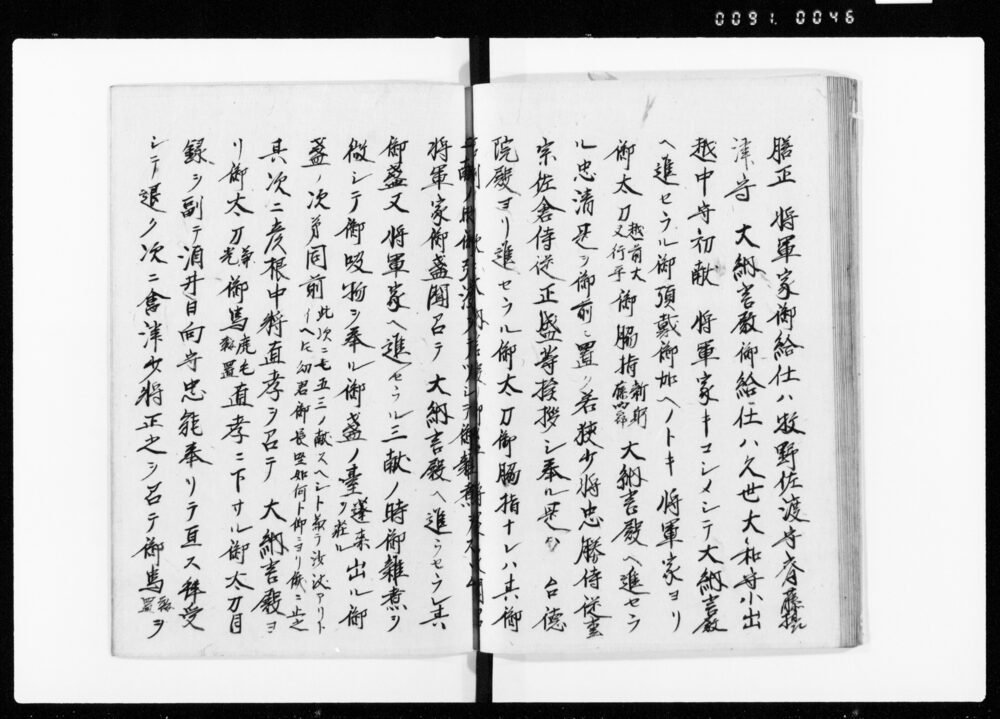 0091.0046
膳正 将軍家御給仕ハ牧野佐渡守斎藤摂
津守 大納言殿御給仕ハ久世大和守小出
越中守初献 将軍家キコシメシテ大納言殿
ヘ進セラル御頂戴御加ヘノトキ 将軍家ヨリ
御太刀越前大又行平御脇指新身藤四郎 大納言殿ヘ進セラ
ル忠清是ヲ御前ニ置ク若狭少将忠勝侍従重
宗佐倉侍従正盛等挨拶シ奉ル是ハ 台徳
院殿ヨリ進セラル御太刀御脇指ナレハ其御
将軍家御盞聞召テ 大納言殿ヘ進ラセラレ其
御盞又将軍家ヘ進セラル三献ノ時御雑煮ヲ
徹シテ御吸物ヲ奉ル御盞ノ臺蓬莱ヲ荘ル出ル御
盞ノ次第同前此次ニ七五三ノ献スヘシト兼テ沙汰アリトイヘトモ幼君御長座如何ト仰ニヨリ俄ニ止之
其次ニ彦根中将直孝ヲ召テ 大納言殿ヨ
リ御太刀御馬鹿毛鞍置直孝ニ下サル御太刀目
録ヲ副テ酒井日向守忠能奉リテ亘ス拝受
シテ退ク次ニ會津少将正之ヲ召テ御馬鞍置ヲ